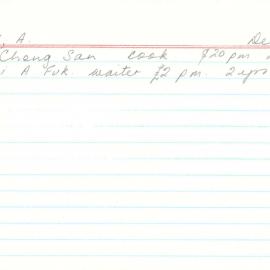 , A. De
Chong San cook £20 pm
A Fuk. waiter £2 pm. 2 yrs